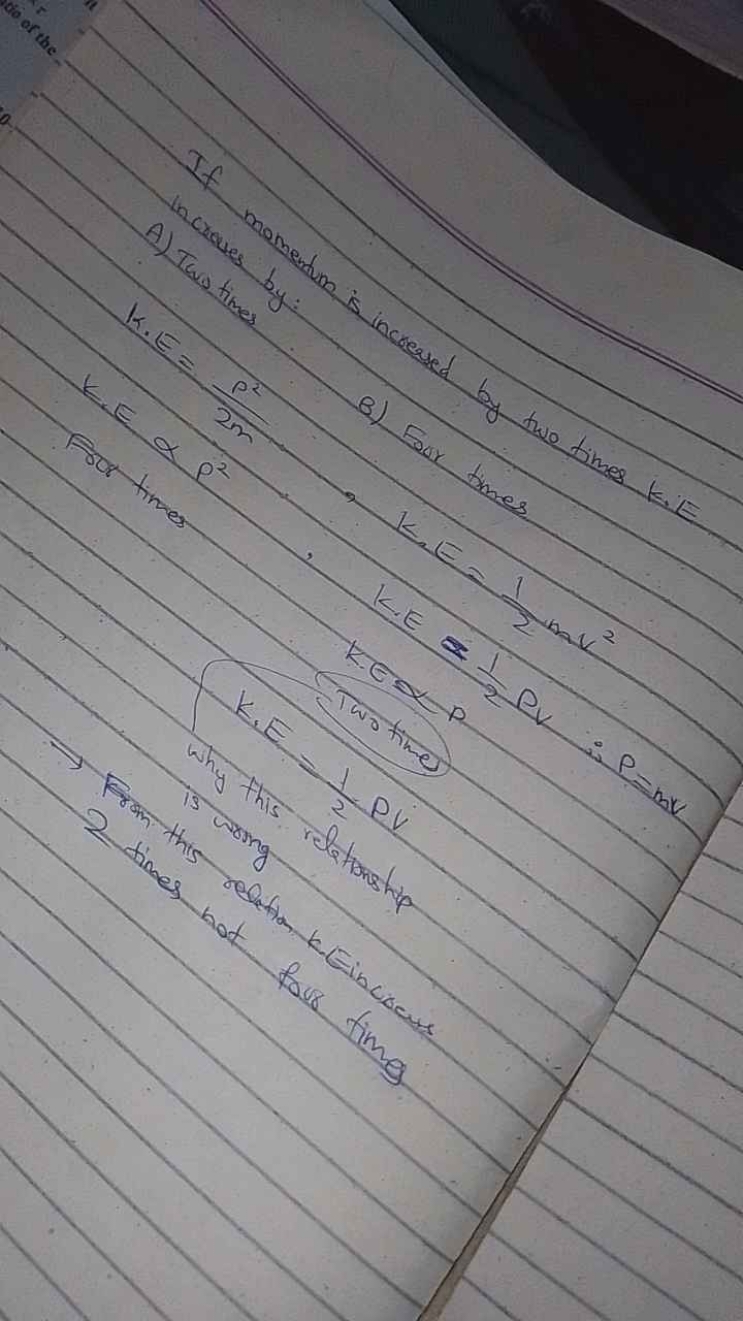 tio of the
If momentum is increased by two times K.E
increases by:
A) Two times B) Four times
K.E = P²/2m , K.E = 1/2 mv²
K.E ∝ P² , K.E = 1/2 PV ∴ P=mV
Four times K.E ∝ P
Two times
K.E = 1/2 PV
why this relationship
is wrong
→ From this relation K.E increases
2 times not four times